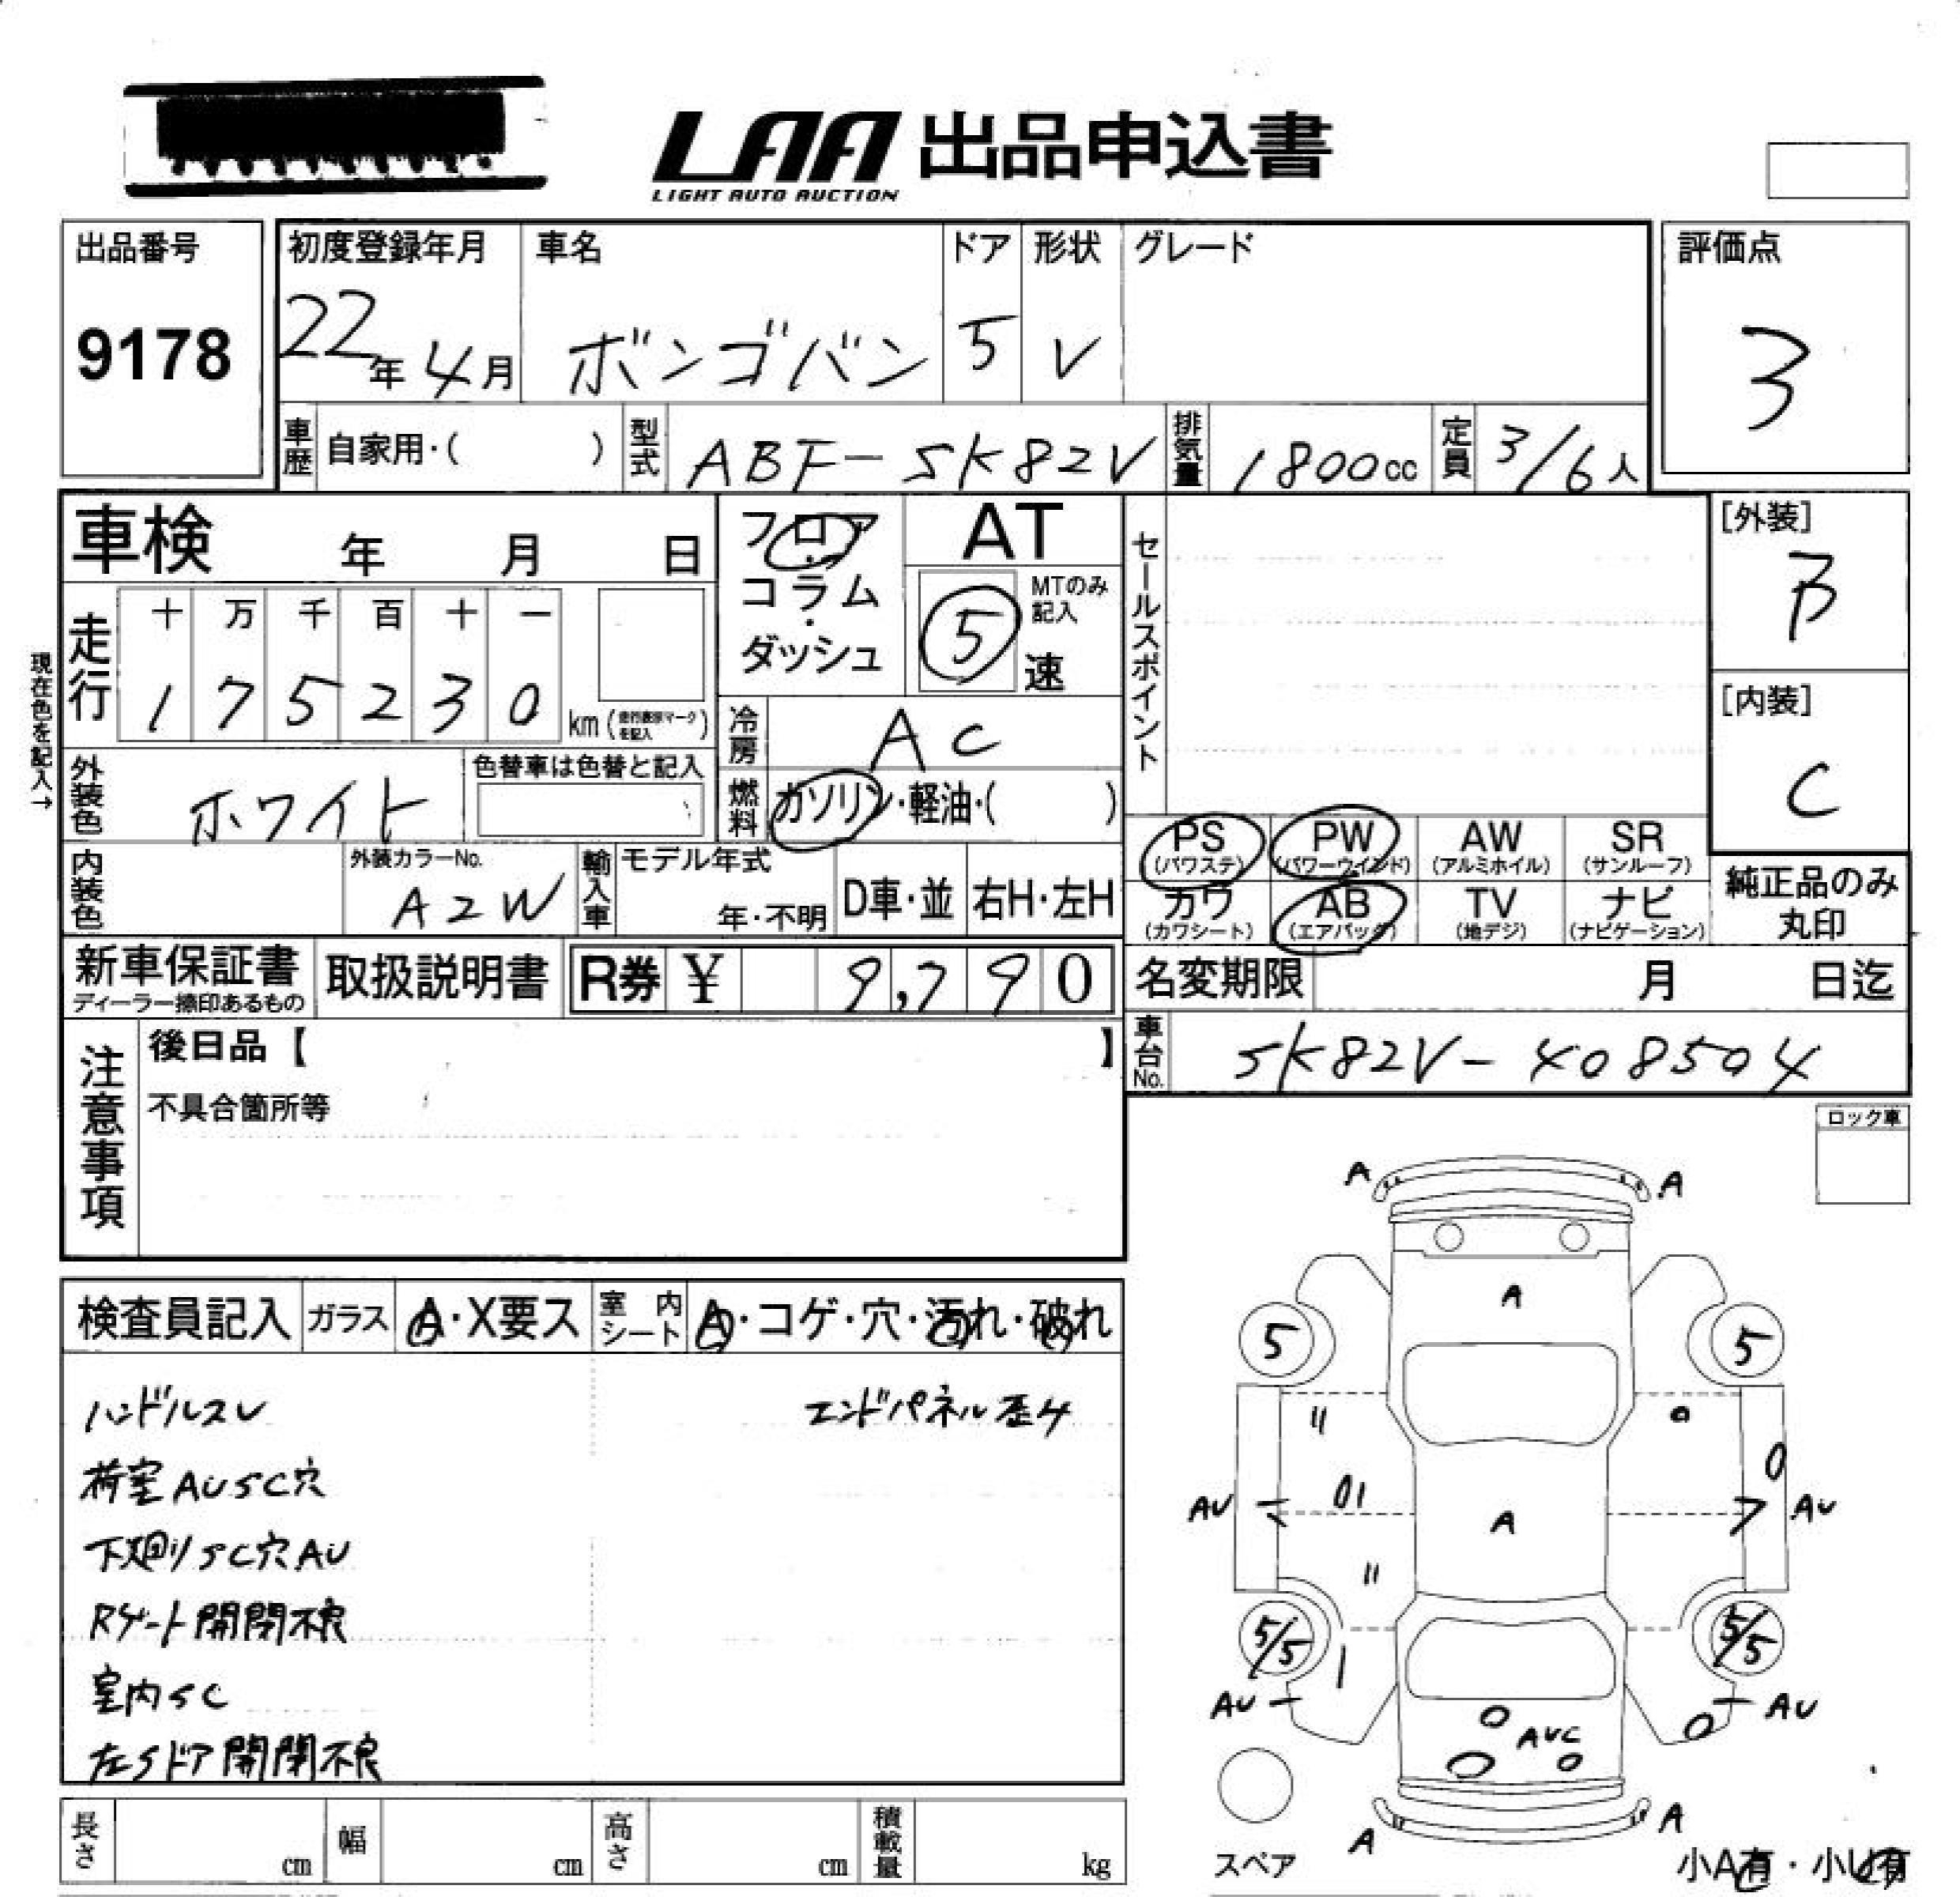 LAA 出品申込書
LIGHT AUTO AUCTION
出品番号
9178
初度登録年月
22年4月
車名
ボンゴバン
ドア
5
形状
V
グレード
評価点
3
車歴
自家用・( )
型式
ABF-SK82V
排気量
1800cc
定員
3/6人
車検 年 月 日
フロア・コラム・ダッシュ
AT
5速
MTのみ記入
セールスポイント
[外装]
B
[内装]
C
現在色を記入→
走行
十 万 千 百 十 一
1 7 5 2 3 0 km(走行表示マークを記入)
冷房
AC
外装色
ホワイト
色替車は色替と記入
燃料
ガソリン・軽油・( )
PS (パワステ)
PW (パワーウインド)
AW (アルミホイル)
SR (サンルーフ)
カワ (カワシート)
AB (エアバッグ)
TV (地デジ)
ナビ (ナビゲーション)
純正品のみ丸印
内装色
外装カラーNo.
A2W
輸入車
モデル年式
年・不明
D車・並
右H・左H
新車保証書
ディーラー捺印あるもの
取扱説明書
R券 ¥ 9,790
名変期限 月 日迄
車台No.
SK82V-408504
注意事項
後日品【 】
不具合箇所等
ロック車
検査員記入
ガラス
A・X要ス
室内シート
A・コゲ・穴・汚れ・破れ
ハンドルスレ
エンドパネル歪4
荷室AUSC穴
下廻りSC穴AU
Rゲート開閉不良
室内SC
左Sドア開閉不良
A A
A
5 5
AU A AU
5/5 5/5
AU AU
AUC
A A
スペア
小A有・小U有
長さ cm
幅 cm
高さ cm
積載量 kg